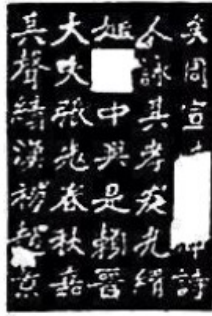 矣周宣仲詩
人詠其孝友光緒
姬中興是賴晉
大夫張老春秋嘉
其聲績漢初趙景